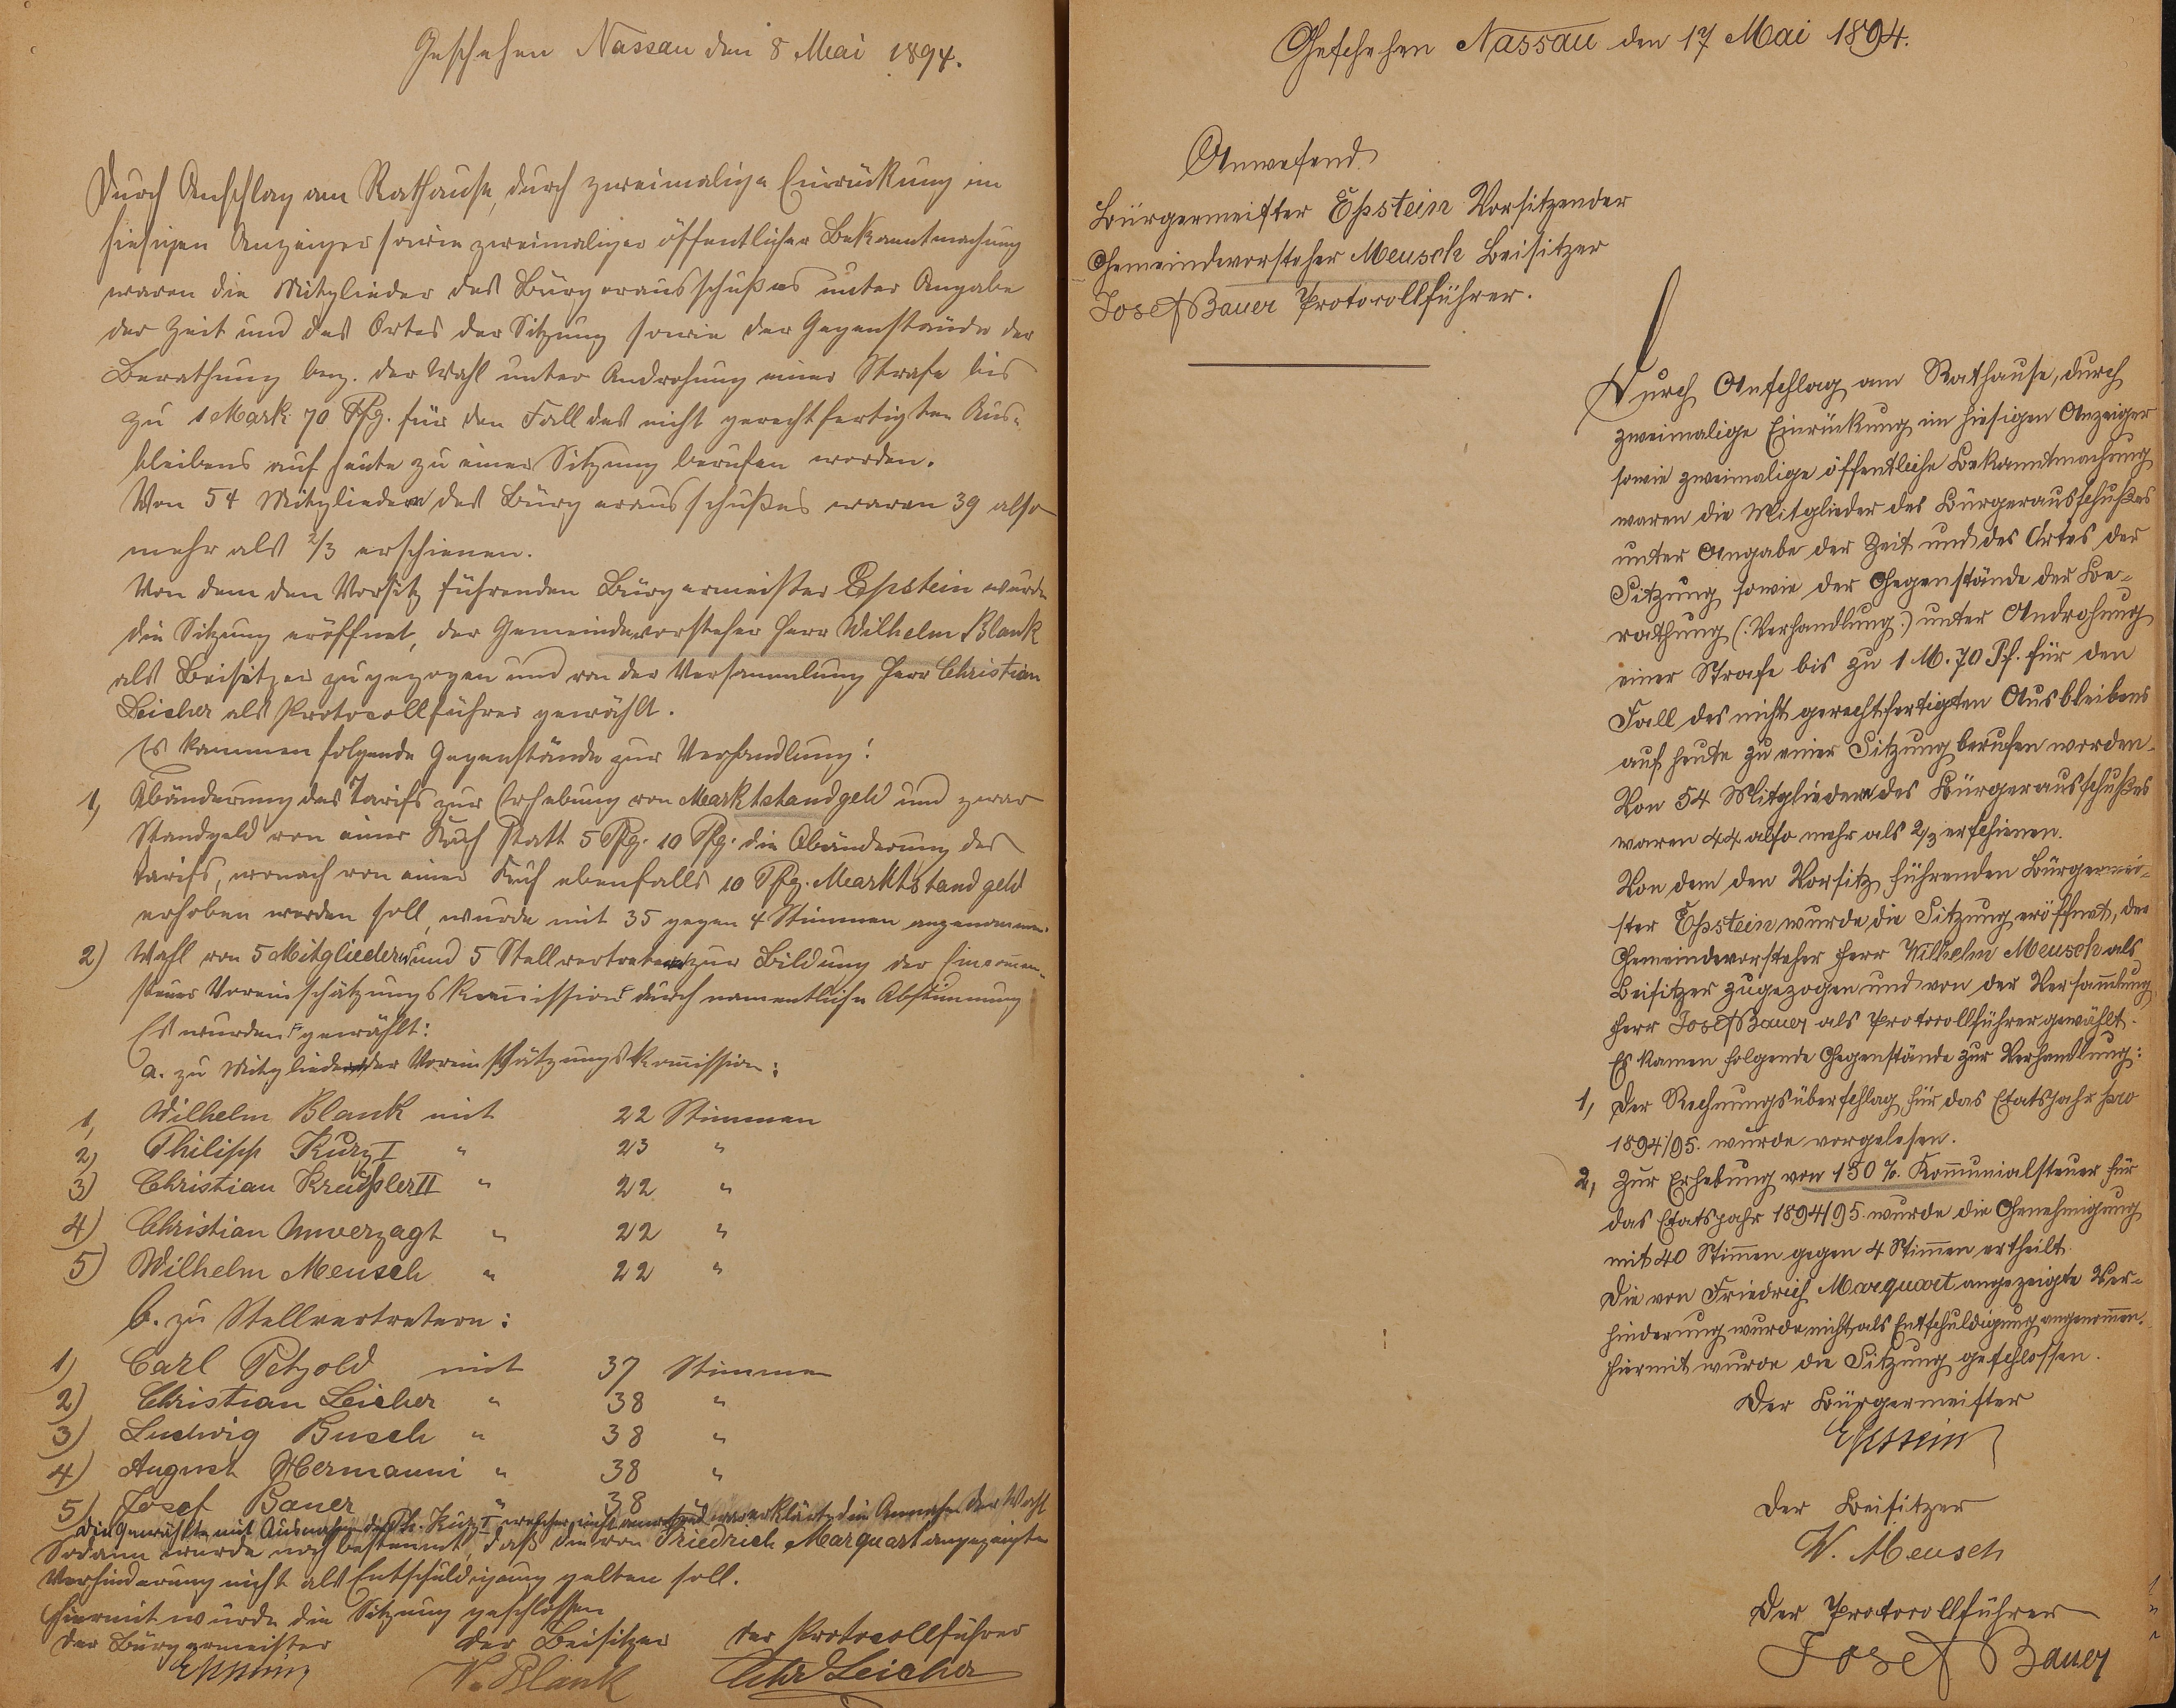 Geschehen Nassau den 8 Mai 1894.
Durch Anschlag am Rathause, durch zweimalige Einrückung im
hiesigen Anzeiger sowie zweimaliger öffentlicher Bekanntmachung
waren die Mitglieder des Bürgerausschußes unter Angabe
der Zeit und des Ortes der Sitzung sowie der Gegenstände der
Berathung bez. der Wahl unter Androhung einer Strafe bis
zu 1 Mark 70 Pfg. für den Fall des nicht gerechtfertigten Aus-
bleibens auf heute zu einer Sitzung berufen worden.
Von 54 Mitgliedern des Bürgerausschußes waren 39 also
mehr als 2/3 erschienen.
Von dem den Vorsitz führenden Bürgermeister Epstein wurde
die Sitzung eröffnet, der Gemeindevorsteher Herr Wilhelm Blank
als Beisitzer zugezogen und von der Versammlung Herr Christian
Leicher als Protocollführer gewählt.
Es kammen folgende Gegenstände zur Verhandlung:
1, Abänderung des Tarifs zur Erhebung von Marktstandgeld und zwar
Standgeld von einer Kuh statt 5 Pfg. 10 Pfg. die Abänderung des
Tarifs, wonach von einer Kuh ebenfalls 10 Pfg. Marktstandgeld
erhoben werden soll, wurde mit 35 gegen 4 Stimmen angenommen.
2) Wahl von 5 Mitgliedern und 5 Stellvertretern zur Bildung der Einkommen-
steuer Voreinschätzungskom̅ission durch namentliche Abstimmung
Es wurden gewählt:
a. zu Mitgliedern der Voreinschätzungskom̅ission:
1, Wilhelm Blank mit 22 Stimmen
2, Philipp Kurz I " 23 "
3) Christian Kreidler II " 22 "
4) Christian Unverzagt " 22 "
5) Wilhelm Meusch " 22 "
b. zu Stellvertretern:
1) Carl Petzold mit 37 Stimmen
2) Christian Leicher " 38 "
3) Ludwig Busch " 38 "
4) August Hermanni " 38 "
5) Josef Bauer " 38
Die Gewählten mit Ausnahme des Ph. Kurz I welcher nicht anwesend war erklärten die Annahme der Wahl
Sodann wurde noch bestimmt, daß die von Friedrich Marquart angezeigte
Verhinderung nicht als Entschuldigung gelten soll.
Hiermit wurde die Sitzung geschlossen
der Bürgermeister der Beisitzer der Protocollführer
Epstein W. Blank Chr Leicher
Geschehen Nassau den 17 Mai 1894.
Anwesend
Bürgermeister Epstein Vorsitzender
Gemeindevorsteher Meusch Beisitzer
Josef Bauer Protocollführer.
Durch Anschlag am Rathause, durch
zweimalige Einrückung im hiesigen Anzeiger
sowie zweimalige öffentliche Bekanntmachung
waren die Mitglieder des Bürgerausschußes
unter Angabe der Zeit und des Ortes der
Sitzung sowie der Gegenstände der Be-
rathung (: Verhandlung :) unter Androhung
einer Strafe bis zu 1 M. 70 Pf. für den
Fall des nicht gerechtfertigten Ausbleibens
auf heute zu einer Sitzung berufen worden.
Von 54 Mitgliedern des Bürgerausschußes
waren 44 also mehr als 2/3 erschienen.
Von dem den Vorsitz führenden Bürgermei-
ster Epstein wurde die Sitzung eröffnet, der
Gemeindevorsteher Herr Wilhelm Meusch als
Beisitzer zugezogen und von der Versam̅lung
Herr Josef Bauer als Protocollführer gewählt.
Es kamen folgende Gegenstände zur Verhandlung:
1, Der Rechnungsüberschlag für das Etatsjahr pro
1894/95. wurde vorgelesen.
2, Zur Erhebung von 150 %. Kom̅unialsteuer für
das Etatsjahr 1894/95. wurde die Genehmigung
mit 40 Stim̅en gegen 4 Stim̅en ertheilt.
Die von Friedrich Marquart angezeigte Ver-
hinderung wurde nicht als Entschuldigung angenom̅en.
Hiermit wurde die Sitzung geschlossen.
Der Bürgermeister
Epstein
Der Beisitzer
W. Meusch
Der Protocollführer
Josef Bauer